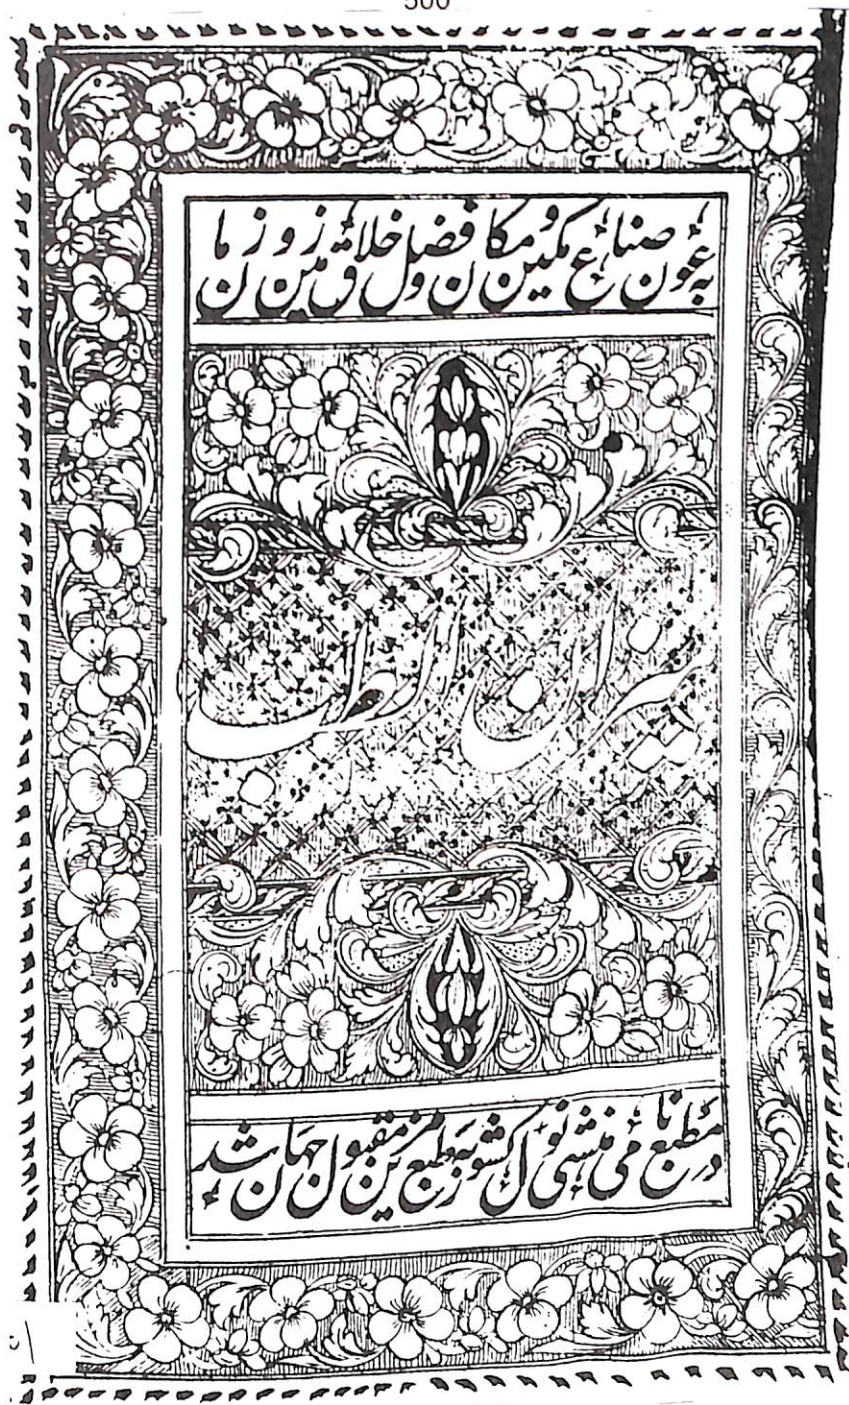 500
به عون صناع مکین و مکان و فضل خلاق زمین و زمان
میزان الطب
در مطبع نامی منشی نول کشور به طبع مزین مقبول جهان شد